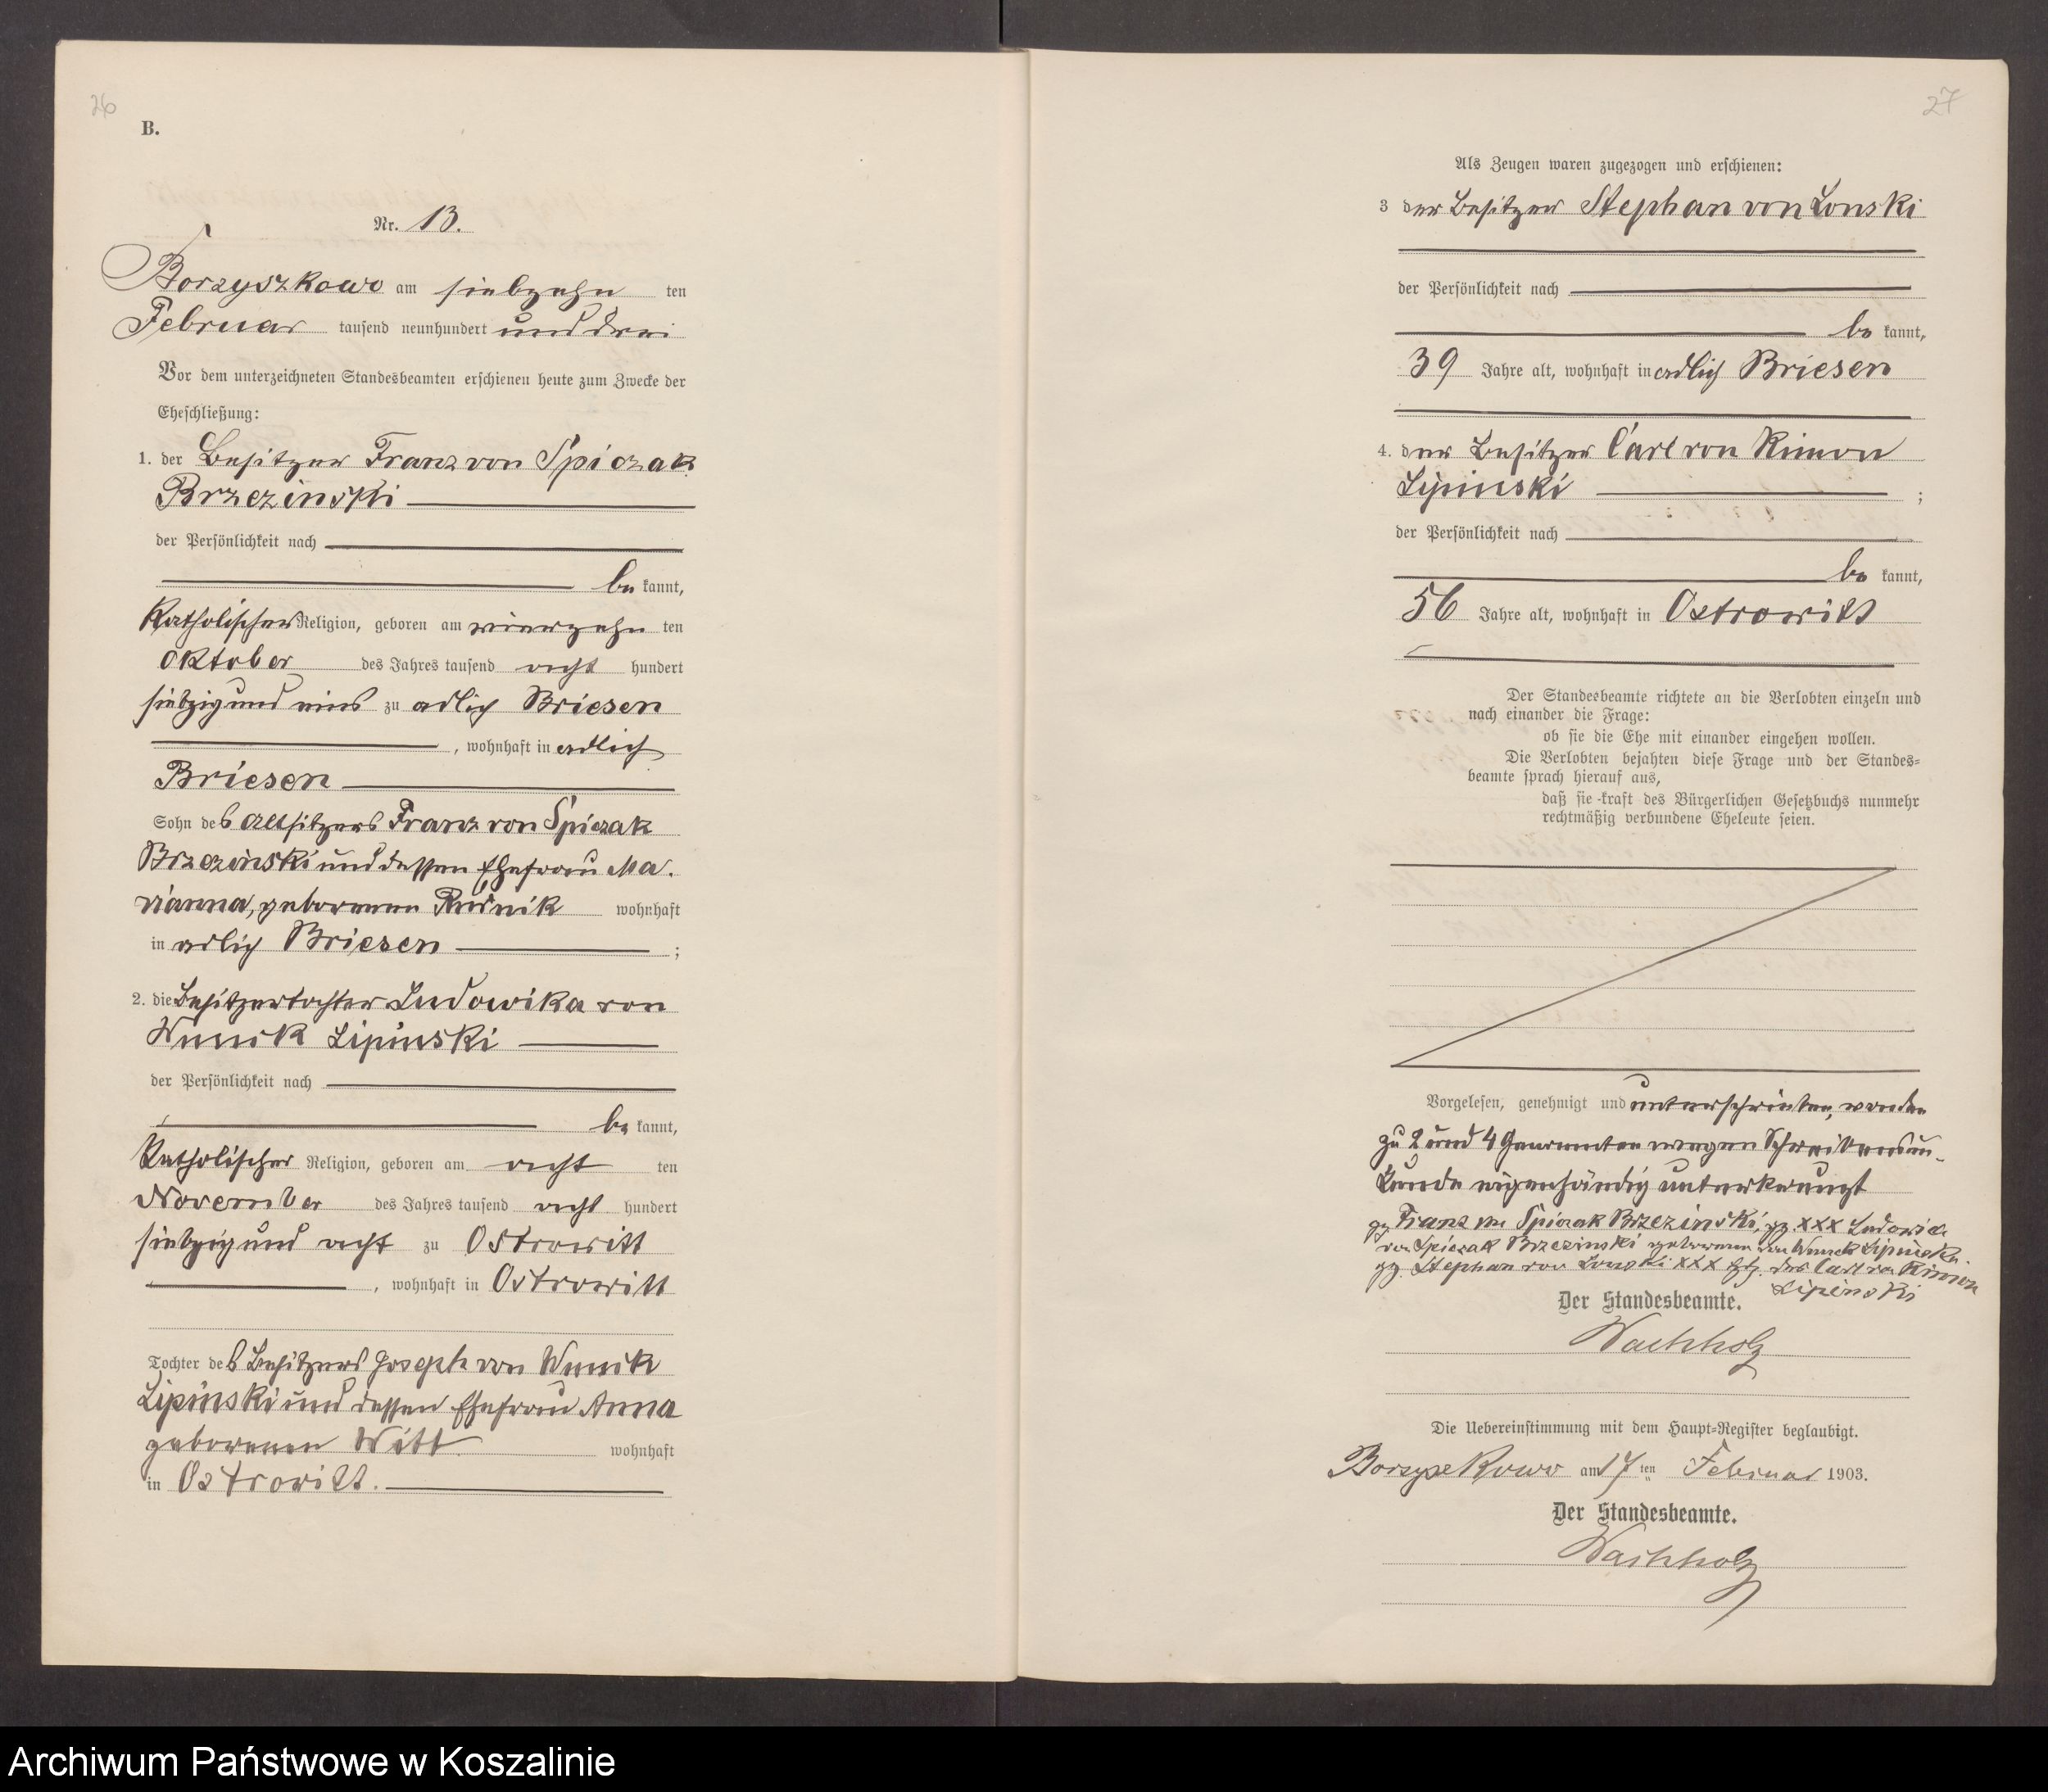 26
B.
Nr. 13.
Borzyszkowo am siebzehn ten
Februar tausend neunhundert und drei
Vor dem unterzeichneten Standesbeamten erschienen heute zum Zwecke der
Eheschließung:
1. der Besitzer Franz von Spiczak
Brzezinski
der Persönlichkeit nach
be kannt,
Katholischer Religion, geboren am vierzehn ten
Oktober des Jahres tausend acht hundert
siebzig und eins zu adlich Briesen
, wohnhaft in adlich
Briesen
Sohn des Altsitzers Franz von Spiczak
Brzezinski und dessen Ehefrau Ma-
rianna, geborenen Rudnik wohnhaft
in adlich Briesen ;
2. die Besitzertochter Ludowika von
Wnuck Lipinski
der Persönlichkeit nach
be kannt,
Katholischer Religion, geboren am acht ten
November des Jahres tausend acht hundert
siebzig und acht zu Ostrowitt
, wohnhaft in Ostrowitt
Tochter des Besitzers Joseph von Wnuck
Lipinski und dessen Ehefrau Anna
geborenen Witt wohnhaft
in Ostrowitt.
27
Als Zeugen waren zugezogen und erschienen:
3 der Besitzer Stephan von Lonski
der Persönlichkeit nach
be kannt,
39 Jahre alt, wohnhaft in adlich Briesen
4. der Besitzer Carl von Rimon
Lipinski ;
der Persönlichkeit nach
be kannt,
56 Jahre alt, wohnhaft in Ostrowitt
Der Standesbeamte richtete an die Verlobten einzeln und
nach einander die Frage:
ob sie die Ehe mit einander eingehen wollen.
Die Verlobten bejahten diese Frage und der Standes-
beamte sprach hierauf aus,
daß sie kraft des Bürgerlichen Gesetzbuchs nunmehr
rechtmäßig verbundene Eheleute seien.
Vorgelesen, genehmigt und unterschrieben, von den
zu 2 und 4 Genannten wegen Schreibensun-
kunde eigenhändig unterkreuzt
gz Franz von Spiczak Brzezinski, gz. XXX Ludowika
von Spiczak Brzezinski geborenen von Wnuck Lipinski.
gz. Stephan von Lonski XXX des Carl von Rimon
Lipinski
Der Standesbeamte.
Wachholz
Die Uebereinstimmung mit dem Haupt-Register beglaubigt.
Borzyszkowo am 17 ten Februar 1903.
Der Standesbeamte.
Wachholz
Archiwum Państwowe w Koszalinie